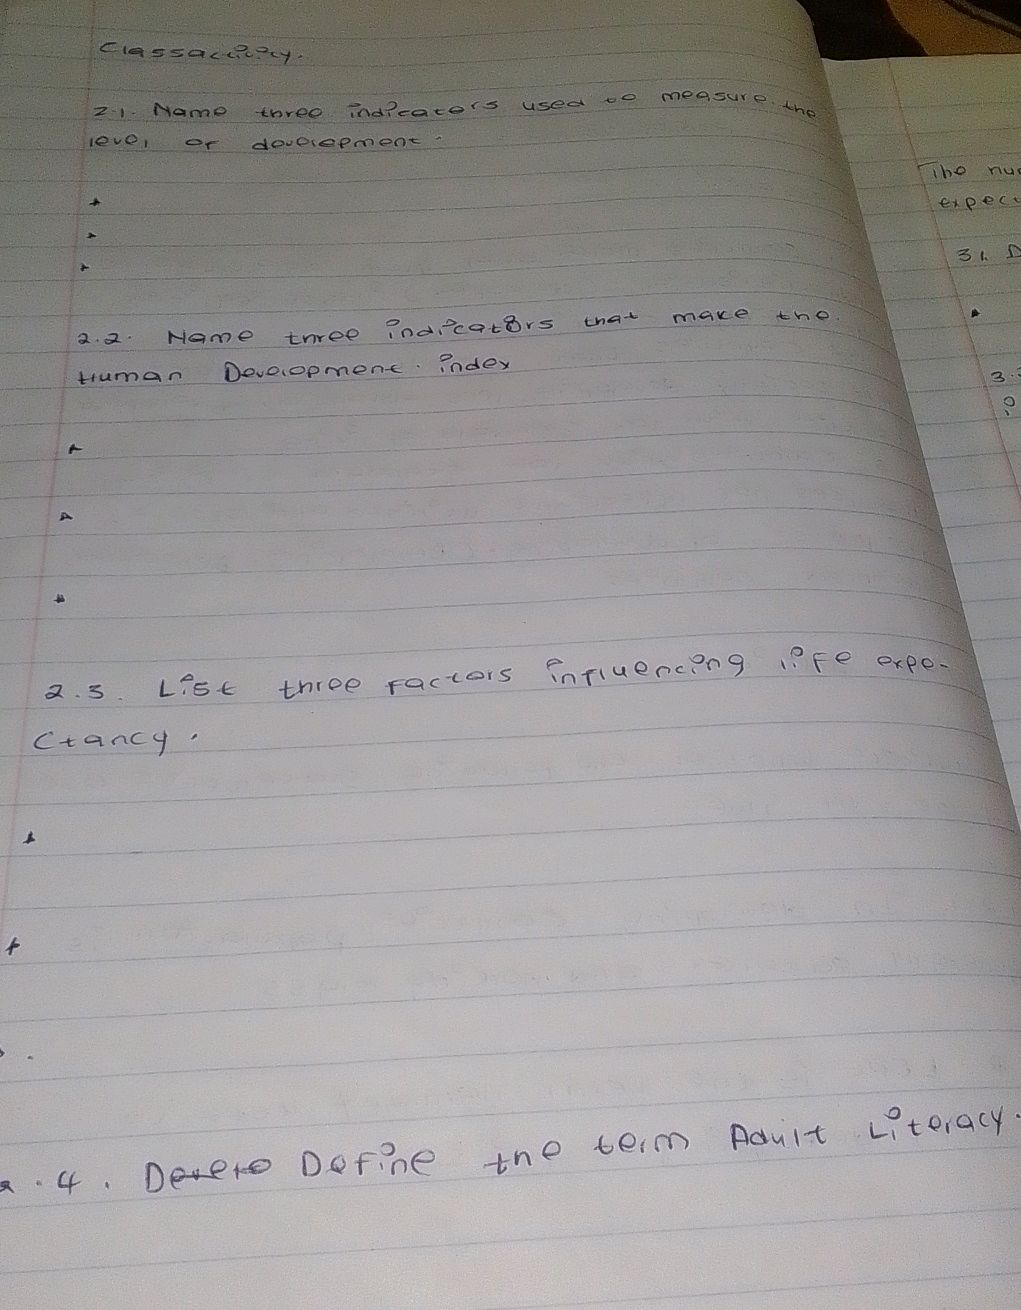 Classactivity.
2.1. Name three indicators used to measure the
level of development.
2.2. Name three indicators that make the
Human Development index
2.3. List three factors influencing life expe-
ctancy.
2.4. Define the term Adult Literacy.
The
31.
3.